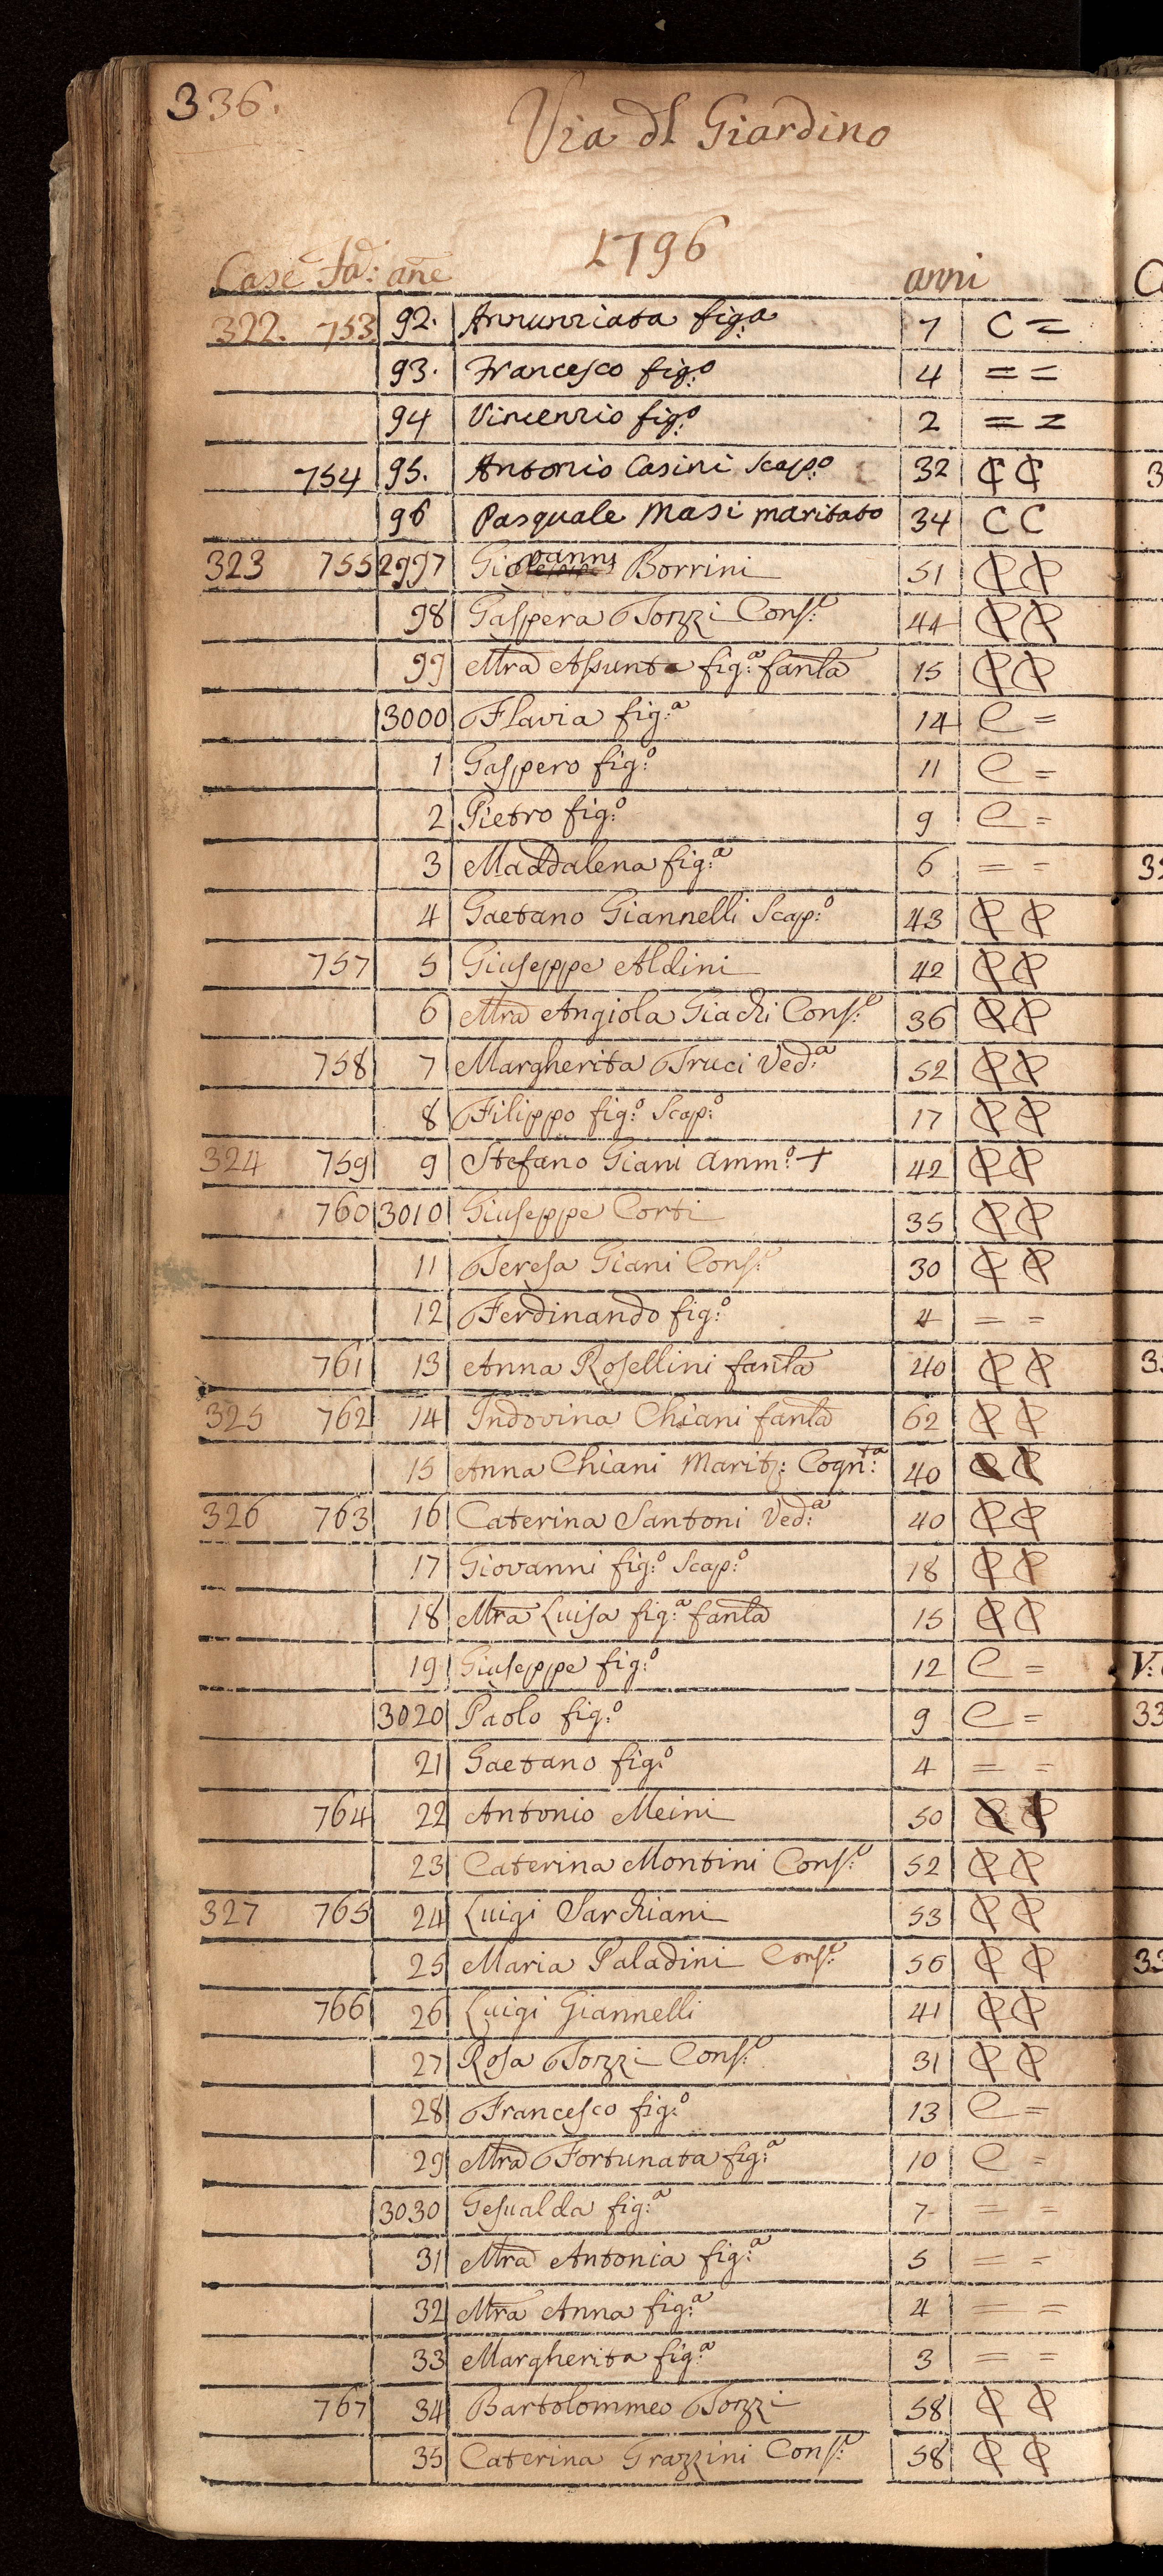 336.
Via dl Giardino
1796
Case Fa: ane anni
322. 753 92. Annunziata fig:a 7 C =
93. Francesco fig:o 4 = =
94 Vincenzio fig:o 2 = =
754 95. Antonio Casini Scap:o 32 C C
96 Pasquale Masi maritato 34 C C
323 755 2997 Giovanni Borrini 51 C C
98 Gaspera Tozzi Cons:e 44 C C
99 Mra Assunta fig:a fanla 15 C C
3000 Flavia fig:a 14 C =
1 Gaspero fig:o 11 C =
2 Pietro fig:o 9 C =
3 Maddalena fig:a 6 = =
4 Gaetano Giannelli Scap:o 43 C C
757 5 Giuseppe Aldini 42 C C
6 Mra Angiola Giachi Cons:e 36 C C
758 7 Margherita Truci Ved:a 52 C C
8 Filippo fig:o Scap:o 17 C C
324 759 9 Stefano Giani Amm:o + 42 C C
760 3010 Giuseppe Corti 35 C C
11 Teresa Giani Cons:e 30 C C
12 Ferdinando fig:o 4 = =
761 13 Anna Rosellini fanla 40 C C
325 762 14 Indovina Chiani fanla 62 C C
15 Anna Chiani Marit: Cogn:ta 40 C C
326 763 16 Caterina Santoni Ved:a 40 C C
17 Giovanni fig:o Scap:o 18 C C
18 Mra Luisa fig:a fanla 15 C C
19 Giuseppe fig:o 12 C =
3020 Paolo fig:o 9 C =
21 Gaetano fig:o 4 = =
764 22 Antonio Meini 50 C C
23 Caterina Montini Cons:e 52 C C
327 765 24 Luigi Sarchiani 53 C C
25 Maria Paladini Cons:e 56 C C
766 26 Luigi Giannelli 41 C C
27 Rosa Tozzi Cons:e 31 C C
28 Francesco fig:o 13 C =
29 Mra Fortunata fig:a 10 C =
3030 Gesualda fig:a 7 = =
31 Mra Antonia fig:a 5 = =
32 Mra Anna fig:a 4 = =
33 Margherita fig:a 3 = =
767 34 Bartolommeo Tozzi 58 C C
35 Caterina Grazzini Cons:e 58 C C